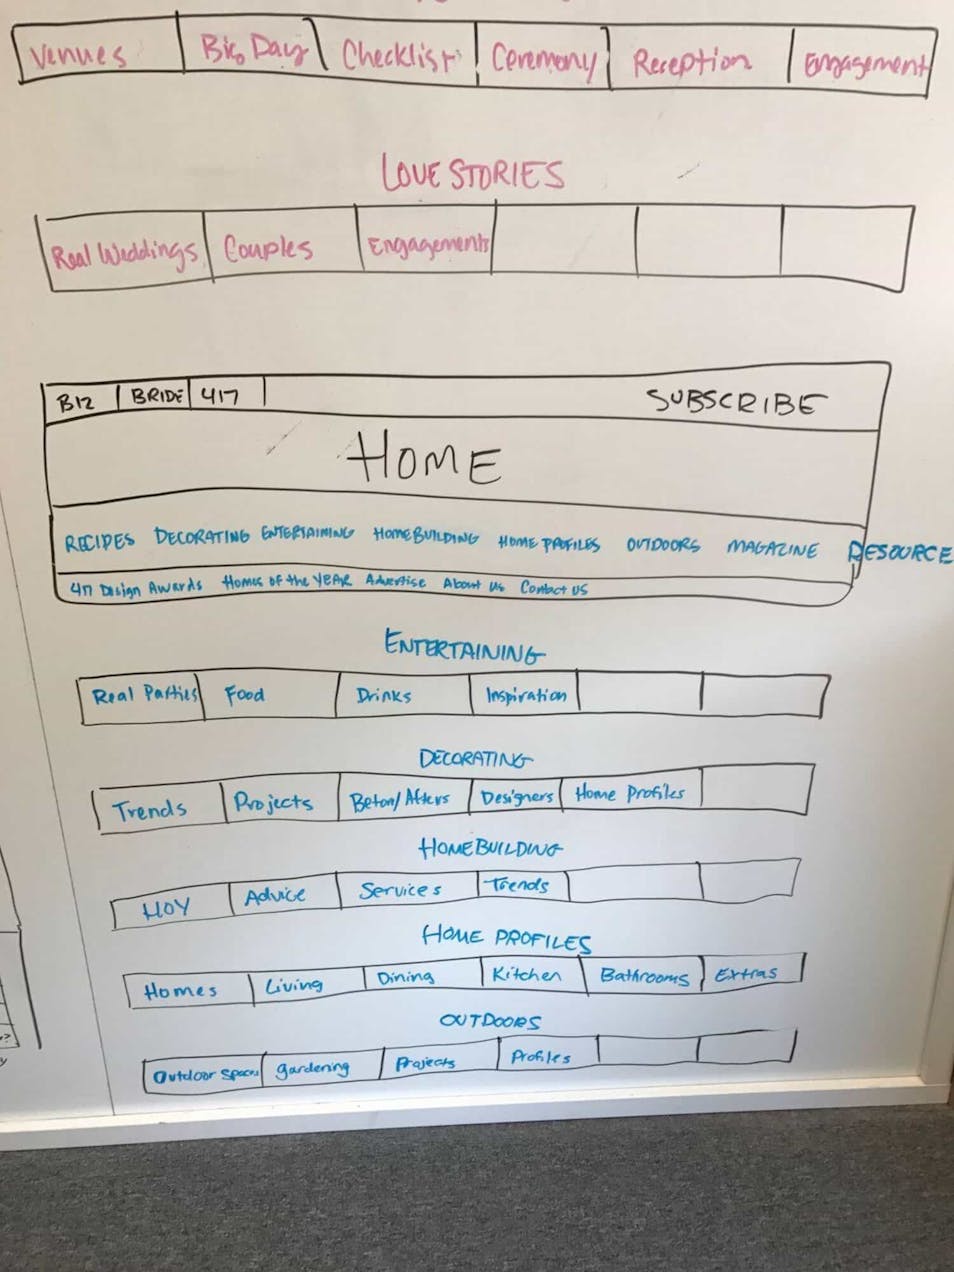 Venues Big Day Checklist Ceremony Reception Engagement
LOVE STORIES
Real Weddings Couples Engagements
B12 BRIDE 417 SUBSCRIBE
HOME
RECIPES DECORATING ENTERTAINING HOMEBUILDING HOME PROFILES OUTDOORS MAGAZINE RESOURCE
417 Design Awards Homes of the YEAR Advertise About Us Contact US
ENTERTAINING
Real Parties Food Drinks Inspiration
DECORATING
Trends Projects Designers Home Profiles
HOMEBUILDING
HOY Advice Services Trends
HOME PROFILES
Homes Living Dining Kitchen Bathrooms Extras
OUTDOORS
Outdoor Spaces gardening Projects Profiles